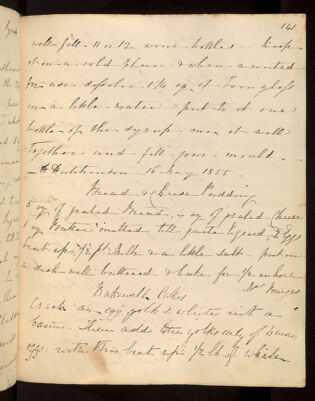 141
will fill 11 or 12 wine bottles - keep
it in a cold place & when wanted
for use dissolve 1¼ oz. of Isinglass
in a little water - put to it one
bottle of the syrup - mix it well
together and fill your mould -
Hutchinson 16 May 1855
Bread & Cheese Pudding
5 oz of grated Bread, 4 oz of grated Cheese
1 oz Butter melted till quite liquid, 2 Eggs
beat up, ½ pt Milk & a little salt - put in
a dish well buttered & bake for ½ an hour
Mrs
Bakewell Cakes
Crack an egg yolk & white into a
basin. Then add the yolks only of three
eggs: with this beat up ½ lb of